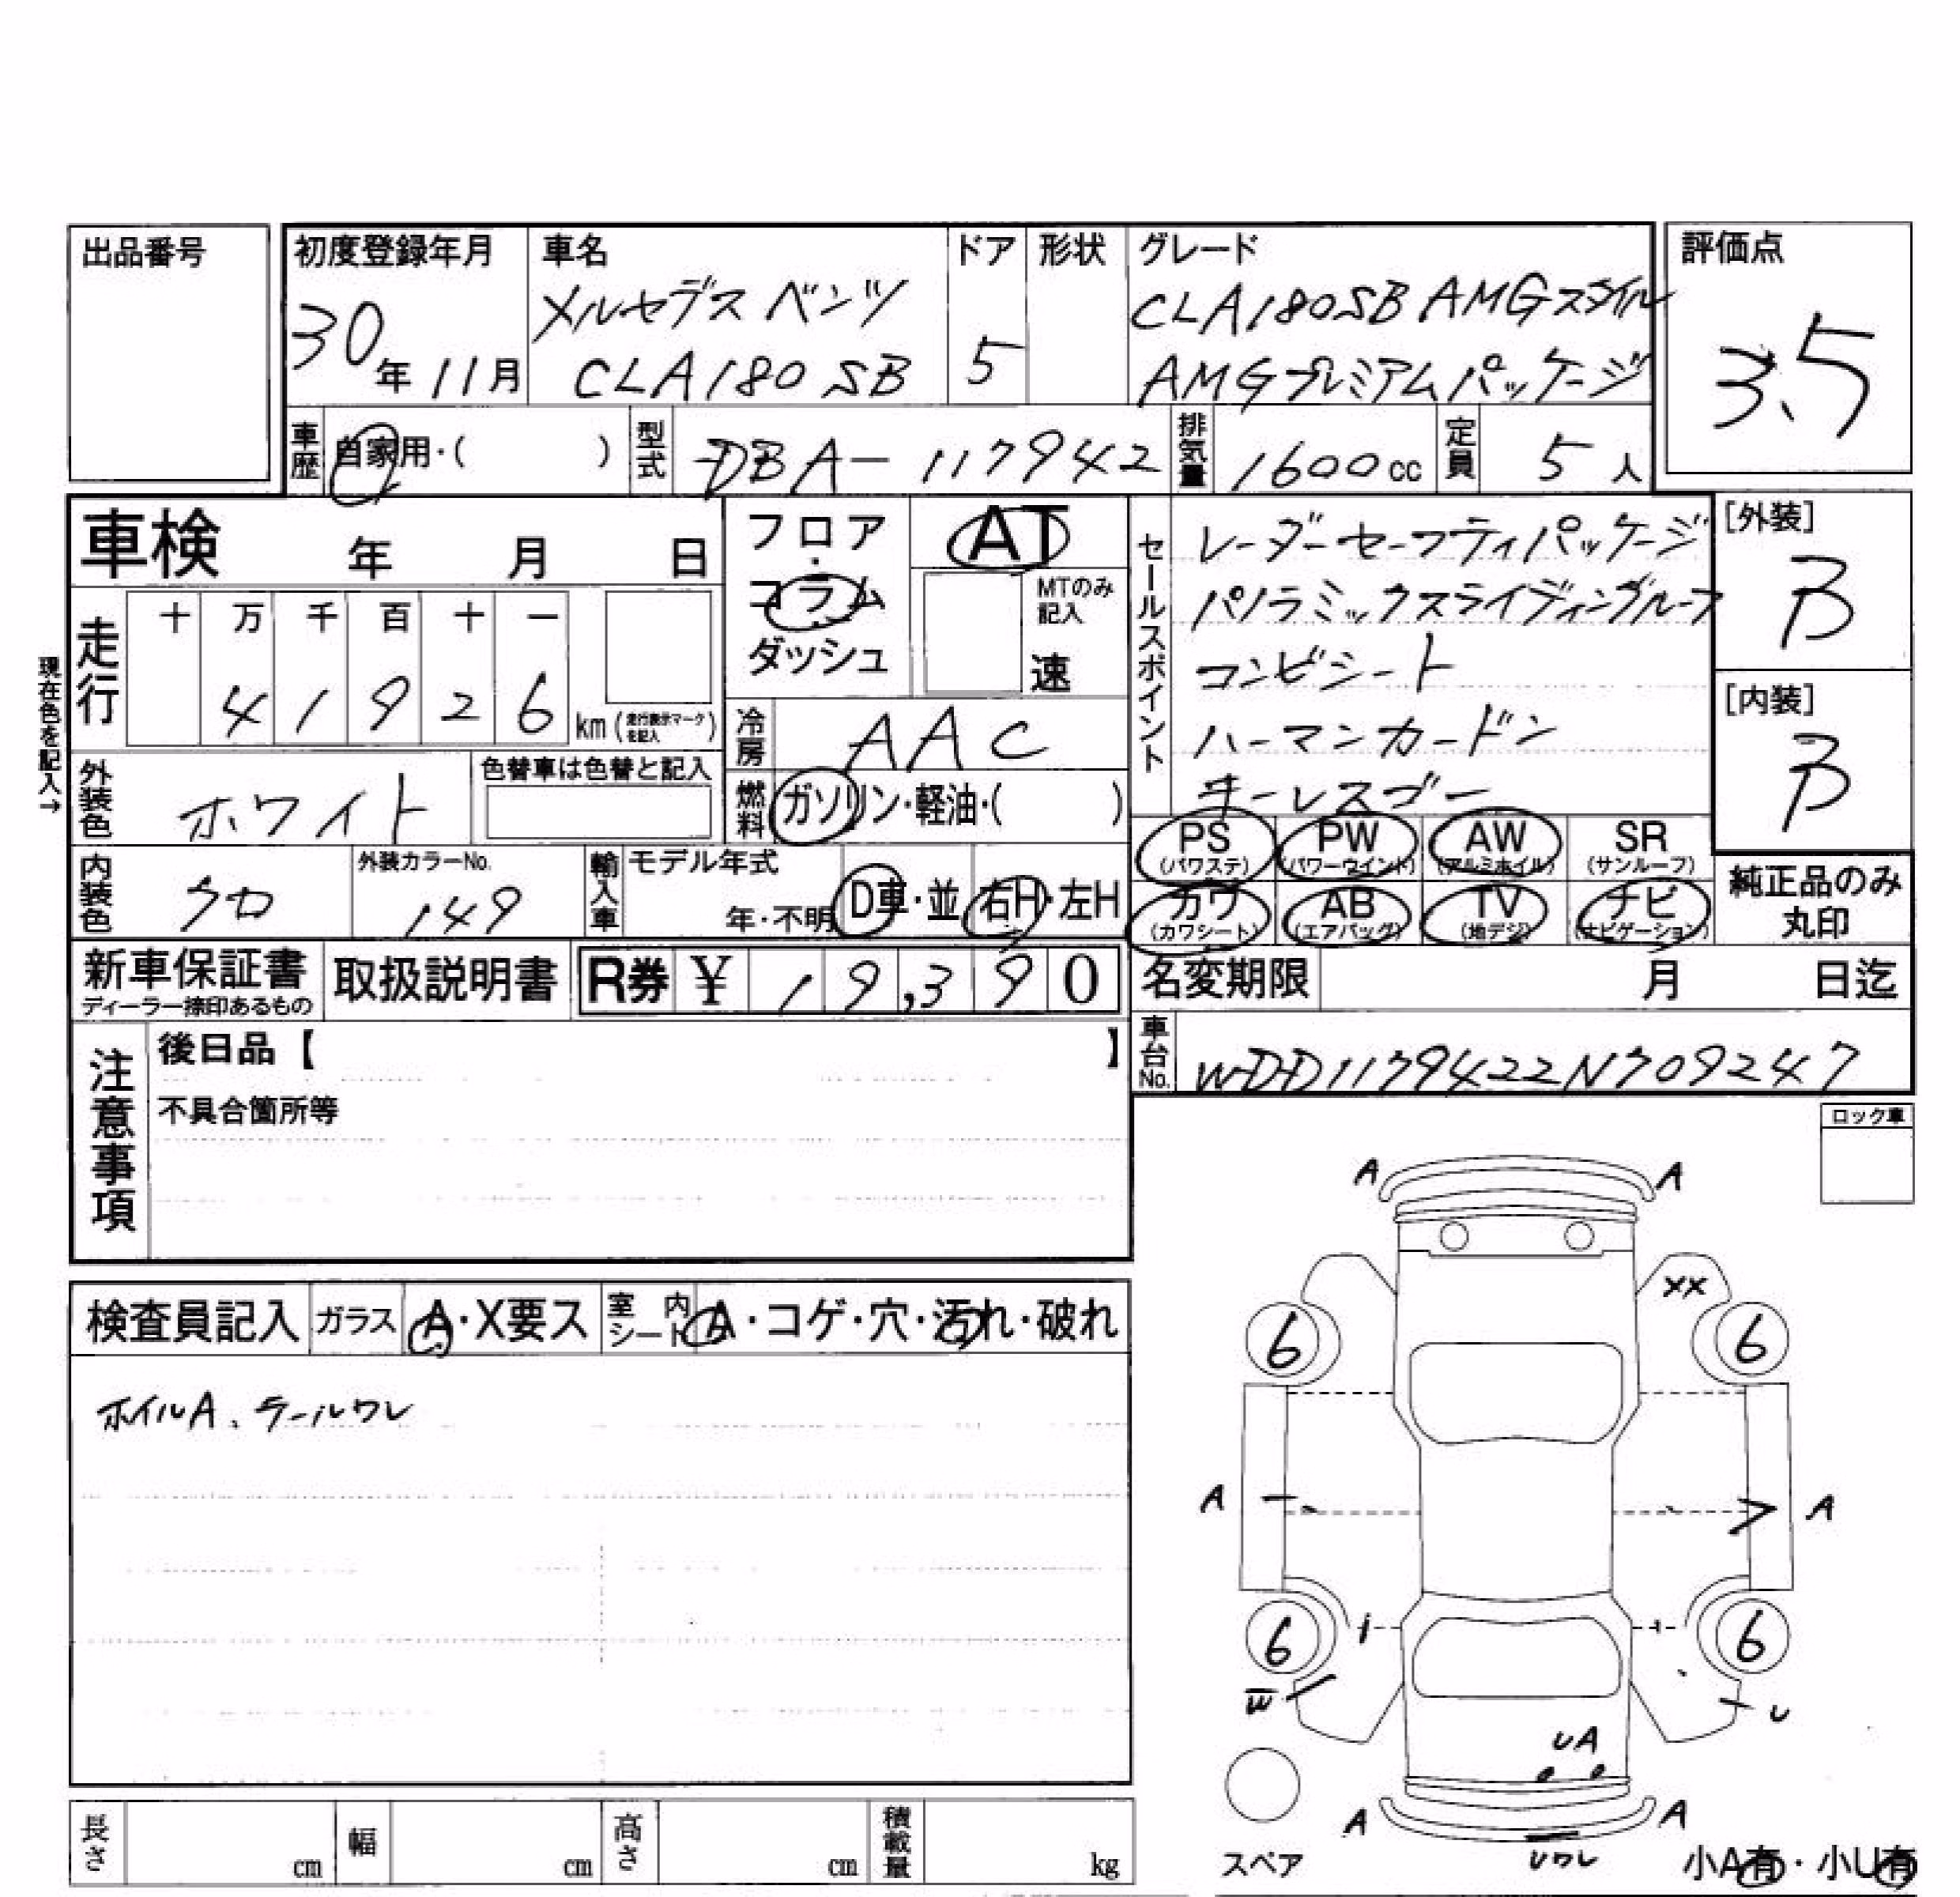 出品番号
初度登録年月
30年11月
車名
メルセデスベンツ
CLA180 SB
ドア
5
形状
グレード
CLA180SB AMGスタイル
AMGプレミアムパッケージ
評価点
3.5
車歴
自家用・( )
型式
DBA-117942
排気量
1600cc
定員
5人
車検 年 月 日
フロア・コラム
ダッシュ
AT
MTのみ記入
速
セールスポイント
レーダーセーフティパッケージ
パノラミックスライディングルーフ
コンビシート
ハーマンカードン
キーレスゴー
[外装]
B
[内装]
B
現在色を記入→
走行
十 万 千 百 十 一
4 1 9 2 6
km(走行表示マークを記入)
冷房
AAC
外装色
ホワイト
色替車は色替と記入
燃料
ガソリン・軽油・( )
PS
(パワステ)
PW
(パワーウインド)
AW
(アルミホイル)
SR
(サンルーフ)
カワ
(カワシート)
AB
(エアバッグ)
TV
(地デジ)
ナビ
(ナビゲーション)
純正品のみ
丸印
内装色
クロ
外装カラーNo.
149
輸入車
モデル年式
年・不明
D車・並
右H・左H
新車保証書
ディーラー捺印あるもの
取扱説明書
R券 ¥ 19,390
名変期限 月 日迄
車台No.
WDD1179422N709247
注意事項
後日品【 】
不具合箇所等
ロック車
検査員記入
ガラス
A・X要ス
室内
シート
A・コゲ・穴・汚れ・破れ
ホイルA、テールワレ
A A
XX
6 6
A A
6 6
W U
UA
A A
Uワレ
スペア
小A有・小U有
長さ cm
幅 cm
高さ cm
積載量 kg